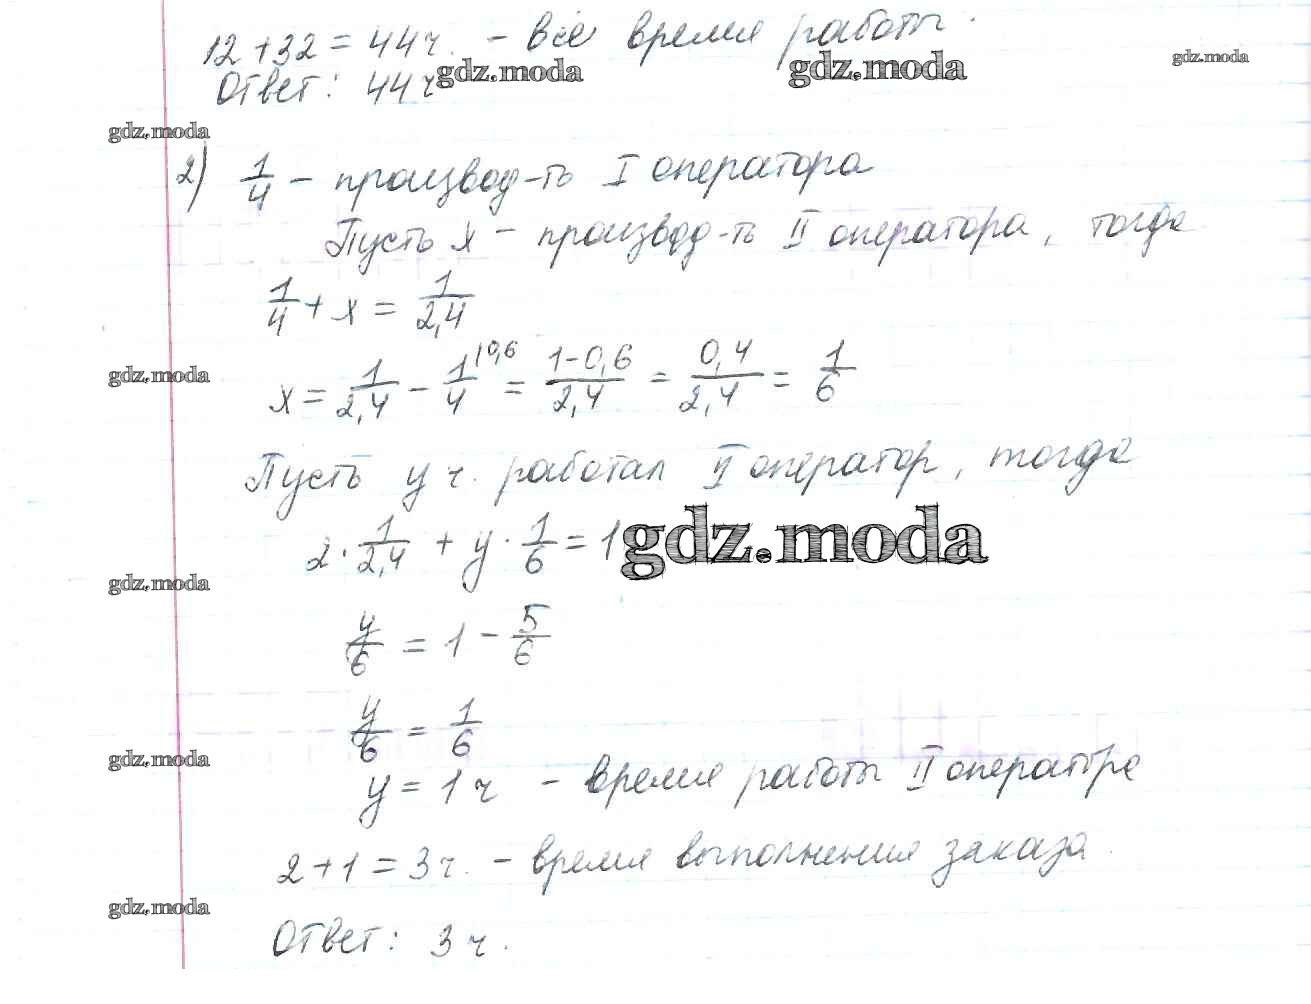 12 + 32 = 44 ч. – всё время работы.
Ответ: 44 ч
gdz.moda gdz.moda gdz.moda
gdz.moda
2) 1/4 – производ-ть I оператора
Пусть x – производ-ть II оператора, тогда
1/4 + x = 1/2,4
gdz.moda
x = 1/2,4 – 1/4 \0,6 = 1-0,6/2,4 = 0,4/2,4 = 1/6
Пусть y ч. работал II оператор, тогда
2 · 1/2,4 + y · 1/6 = 1
gdz.moda
gdz.moda
y/6 = 1 – 5/6
y/6 = 1/6
gdz.moda
y = 1 ч – время работы II оператора
2 + 1 = 3 ч. – время выполнения заказа.
gdz.moda
Ответ: 3 ч.